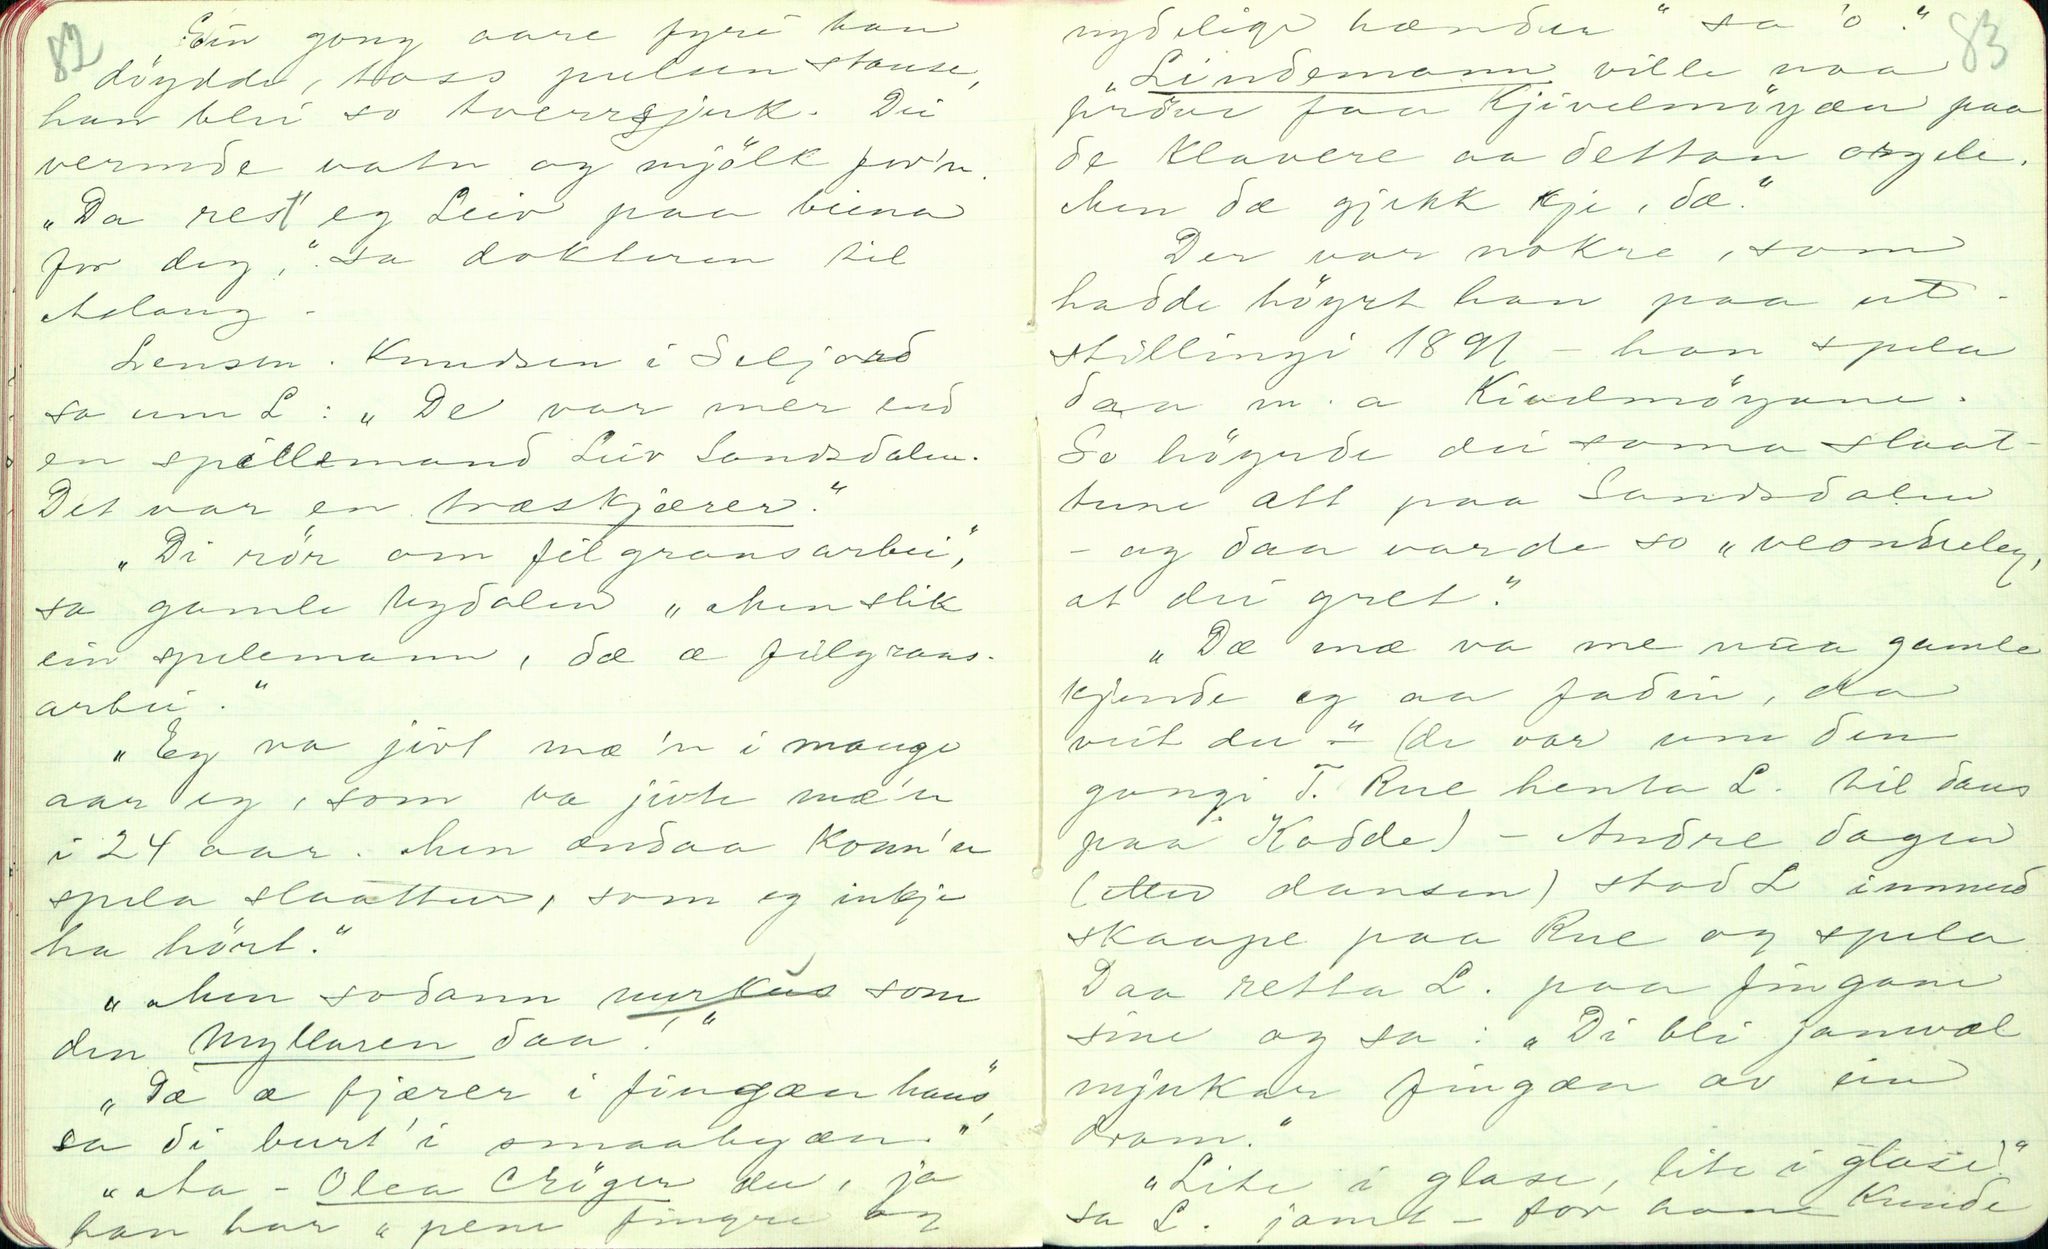 82
Ein gong aare fyri han
döydde, toss pulsen stause,
han blei so tverrsjuk. Dei
vermde vatn og mjölk for'n.
"Da rest eg Leiv paa beina
for deg," sa dokteren til
Aslaug -
Lensm. Knudsen i Seljord
sa um L: "De var mer end
en spillemand Leiv Sandsdalen.
Det var en træskjærer."
"Di rör om filgransarbei,"
sa gamle Nydalen "Men slik
ein spelemann, dæ æ filgrans-
arbei."
"Eg va jivt mæ'n i mange
aar eg, som va jivte mæ'n
i 24 aar. Men ændaa konn'n
spela slaattur, som eg inkje
ha hört."
"Men sodann murkus som
den Myllaren daa!"
"Dæ æ fjærer i fingæn hans",
sa di burt i smaabyæn."
"Aa - Olea Cröger du, ja
han har "pene fingre og
83
nydelige hænder" sa 'o."
"Lindemann ville naa
pröve faa Kjivelmöyæn paa
de klavere aa dettan orgele.
Men dæ gjekk kje, dæ."
Der var nokre, som
hadde höyrt han paa ut-
stillingi 1891 - han spela
daa m. a Kivelmöyane.
So höyrde dei soma slaat-
tune att paa Sandsdalen
- og daa varde so "veondreleg,
at dei gret."
"Dæ mæ va me naa gamle
kjende eg aa fadin, da
veit du -" (de var um den
gongi T. Rue henta L. til dans
paa Kodde) - Andre dagen
(etter dansen) stod L innmed
skaape paa Rue og spela
Daa retta L. paa fingane
sine og sa: "Di bli janvæl
mjukar fingæn av ein
dram."
"Lite i glase, lite i glase!"
sa L. jamt - for aane kunde